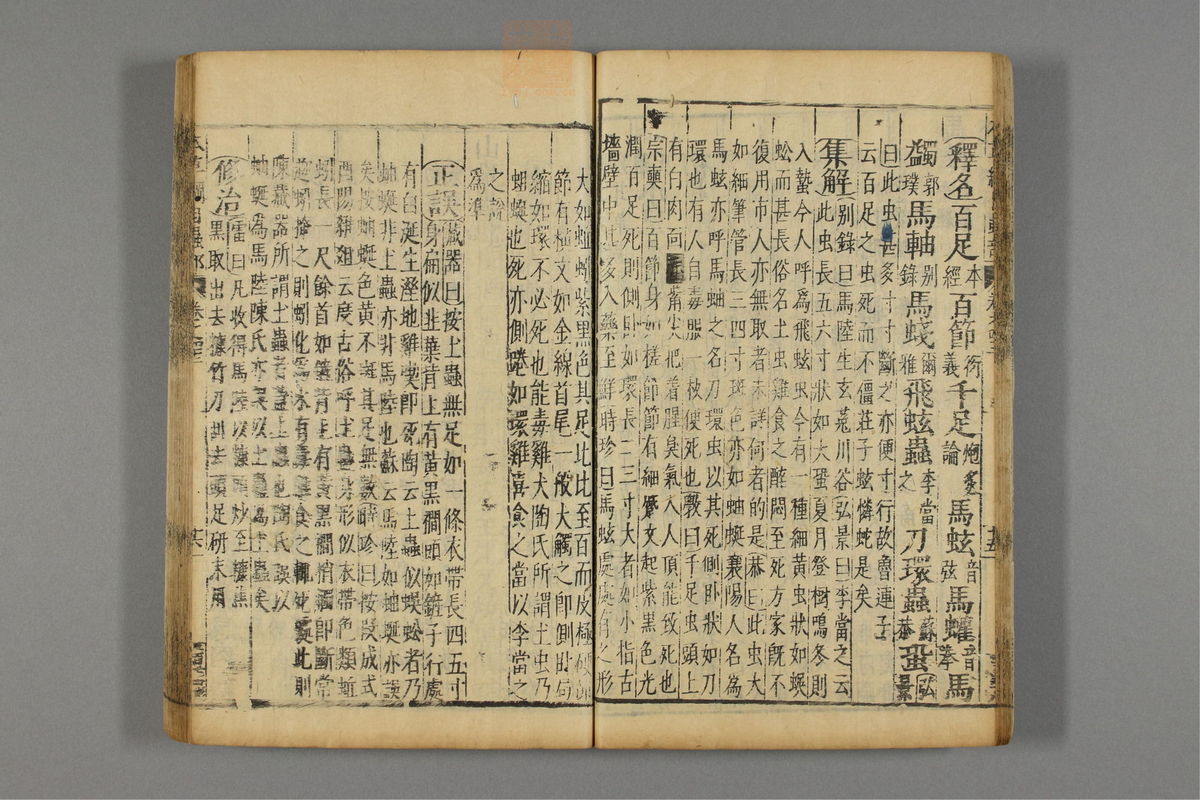 釋名百足本經百節衍義千足炮炙論馬蚿音弦馬蠸音拳馬
蠲郭璞馬軸别錄馬蛷爾雅飛蚿蟲李當之刀環蟲蘇恭蛩弘景
曰此虫甚多寸寸斷之亦便寸行故魯連子
云百足之虫死而不僵莊子蚿憐蛇是矣
集解别錄曰馬陸生玄菟川谷弘景曰李當之云
此虫長五六寸狀如大蛩夏月登樹鳴冬則
入蟄今人呼爲飛蚿虫今有一種細黄虫狀如蜈
蚣而甚長俗名土虫雞食之醉悶至死方家既不
復用市人亦無取者未詳何者的是恭曰此虫大
如細筆管長三四寸斑色亦如蚰蜒襄陽人名爲
馬蚿亦呼馬蚰之名刀環虫以其死側卧狀如刀
環也有人自毒服一枚便死也斆曰千足虫頭上
有白肉面 觜尖把着腥臭氣入人頂能致死也
宗奭曰百節身如槎節節有細蹙文起紫黑色光
潤百足死則側卧如環長二三寸大者如小指古
墻壁中甚多入藥至鮮時珍曰馬蚿處處有之形
大如蚯蚓紫黑色其足比比至百而皮極硬
節有橫文如金線首尾一般大觸之即側卧局
縮如環不必死也能毒雞犬陶氏所謂土虫乃
蚰蜒也死亦側踡如環雞喜食之當以李當之
之説
爲凖
正誤藏器曰按土蟲無足如一條衣帶長四五寸
身扁似韭葉背上有黄黑襉頭如鏟子行處
有白涎生溼地雞喫即死陶云土蟲似蜈蚣者乃
蚰蜒非土蟲亦非馬陸也蘇云馬陸如蚰蜒亦誤
矣按蚰蜒色黄不斑其足無數時珍曰按叚成式
酉陽雜俎云度古俗呼土蟲身形似衣帶色類蚯
蚓長一尺餘首如鏟背上有黄黑襉稍觸即斷常
趁蚓掩之則蚓化爲水有毒雞食之輒死㨿此則
陳藏器所謂土蟲者蓋土蠱也陶氏誤以
蚰蜒爲馬陸陳氏亦誤以土蠱爲土蟲矣
修治雷曰凡收得馬陸以糠頭炒至糠焦
黒取出去糠竹刀刮去頭足研末用